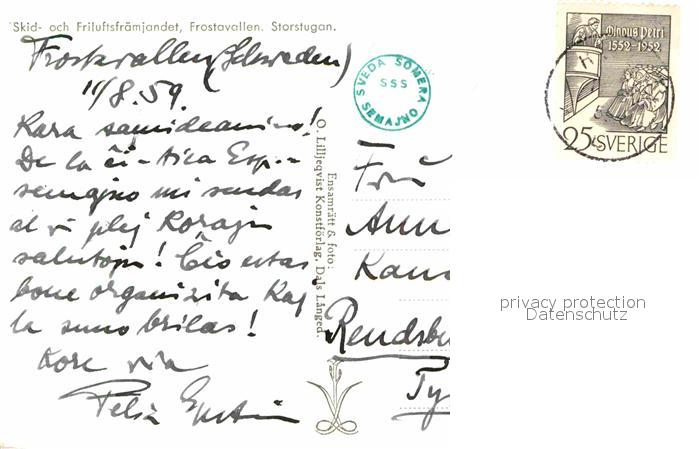 Skid- och Friluftsfrämjandet, Frostavallen. Storstugan.
Frostavallen (Schweden)
11/8.59.
Kara samideanino!
De la ĉi-tiea Esp.-
semajno mi sendas
al vi plej korajn
salutojn! Ĉio estas
bone organizita kaj
la suno brilas!
Kore via
Felix Epstein
SVEDA SOMERA
SSS
SEMAJNO
Ensamrätt & foto:
O. Lilljeqvist Konstförlag, Dals Långed.
Frü
Ann
Rendsbu
Olavus Petri
1552-1952
25 SVERIGE
privacy protection
Datenschutz